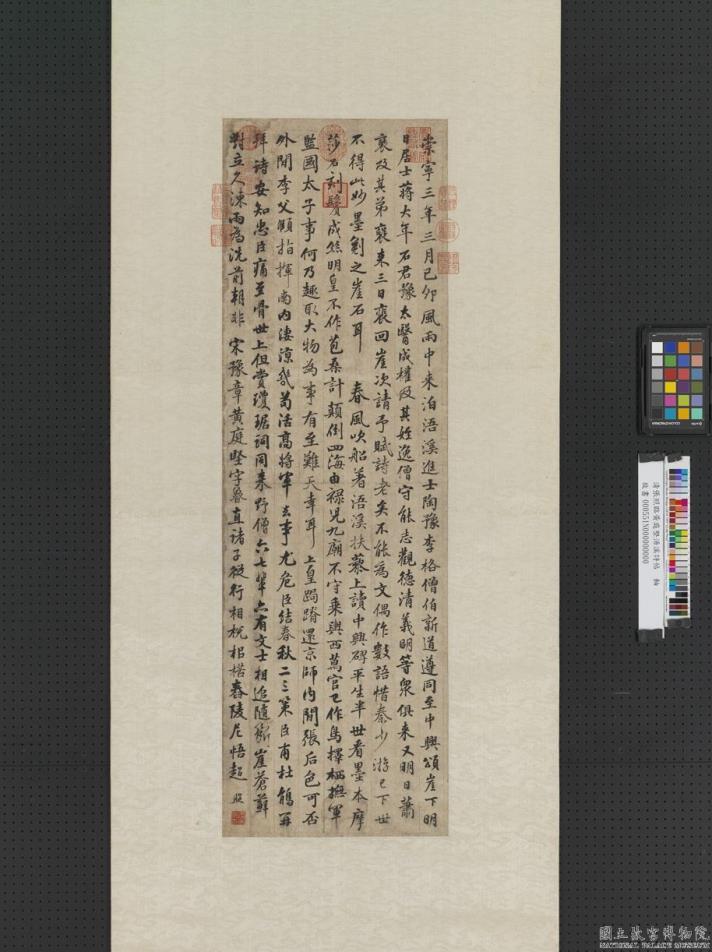 崇寧三年三月己卯風雨中來泊浯溪進士陶豫李格僧伯新道遵同至中興頌崖下明
日居士蔣大年石君豫太醫成權及其姪逸僧守能志觀德清義明等眾俱來又明日蕭
襃及其弟襃來三日襃回崖次請予賦詩老矣不能為文偶作數語惜秦少游已下世
不得此妙墨劖之崖石耳 春風吹船著浯溪扶藜上讀中興碑平生半世看墨本摩
莎石刻鬢成絲明皇不作苞桑計顛倒四海由祿兒九廟不守乘輿西萬官已作烏擇栖撫軍
監國太子事何乃趣取大物為事有至難天幸耳上皇跼蹐還京師內間張后色可否
外間李父頤指揮南內淒涼幾苟活高將軍去事尤危臣結春秋二三策臣甫杜鵑再
拜詩安知忠臣痛至骨世上但賞瓊琚詞同來野僧六七輩亦有文士相追隨斷崖蒼蘚
對立久涷雨為洗前朝非 宋豫章黃庭堅字魯直諸子從行相梲相楛舂陵尼悟超 照
清張照臨黃庭堅浯溪詩帖 軸
故書000551N000000000
國立故宮博物院
NATIONAL PALACE MUSEUM